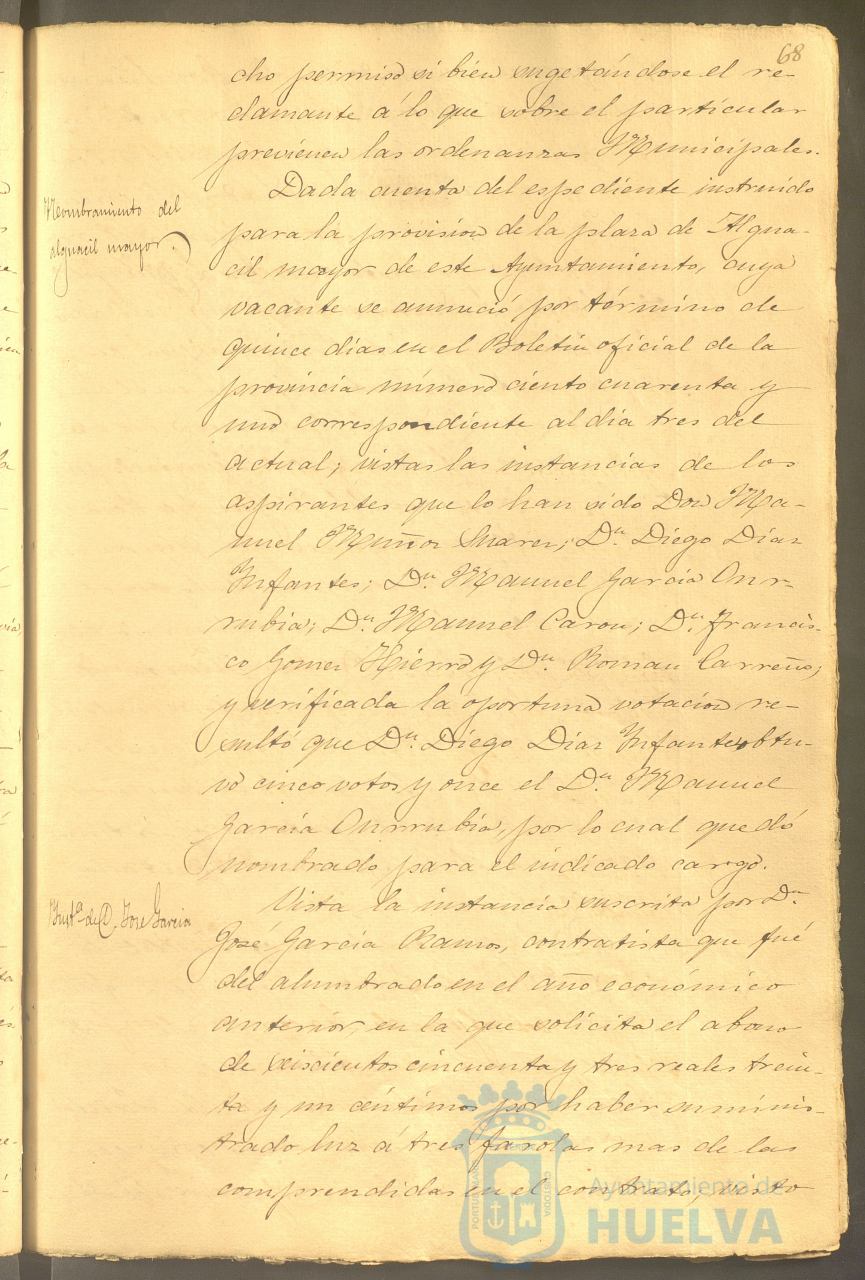 68
cho permiso si bien sugetándose el re-
clamante á lo que sobre el particular
previenen las ordenanzas Municipales.
Nombramiento del
alguacil mayor.
Dada cuenta del espediente instruido
para la provision de la plaza de Algua-
cil mayor de este Ayuntamiento, cuya
vacante se anunció por término de
quince dias en el Boletin oficial de la
provincia número ciento cuarenta y
uno correspondiente al dia tres del
actual; vistas las instancias de los
aspirantes que lo han sido Don Ma-
nuel Muñoz Suarez; Dn. Diego Diaz
Infantes; Dn. Manuel Garcia Onr-
rubia; Dn. Manuel Caron; Dn. Francis-
co Gomez Hierro y Dn. Roman Carreño;
y verificada la oportuna votacion re-
sultó que Dn. Diego Diaz Infantes obtu-
vo cinco votos y once el Dn. Manuel
Garcia Onrrubia, por lo cual quedó
nombrado para el indicado cargo.
Insta. de D. Jose Garcia
Vista la instancia suscrita por Dn.
José Garcia Ramos, contratista que fué
del alumbrado en el año económico
anterior, en la que solicita el abono
de seiscientos cincuenta y tres reales trein-
ta y un céntimos por haber suminis-
trado luz á tres farolas mas de las
comprendidas en el contrato, visto
PORTUS
CUSTODIA
Ayuntamiento de
HUELVA